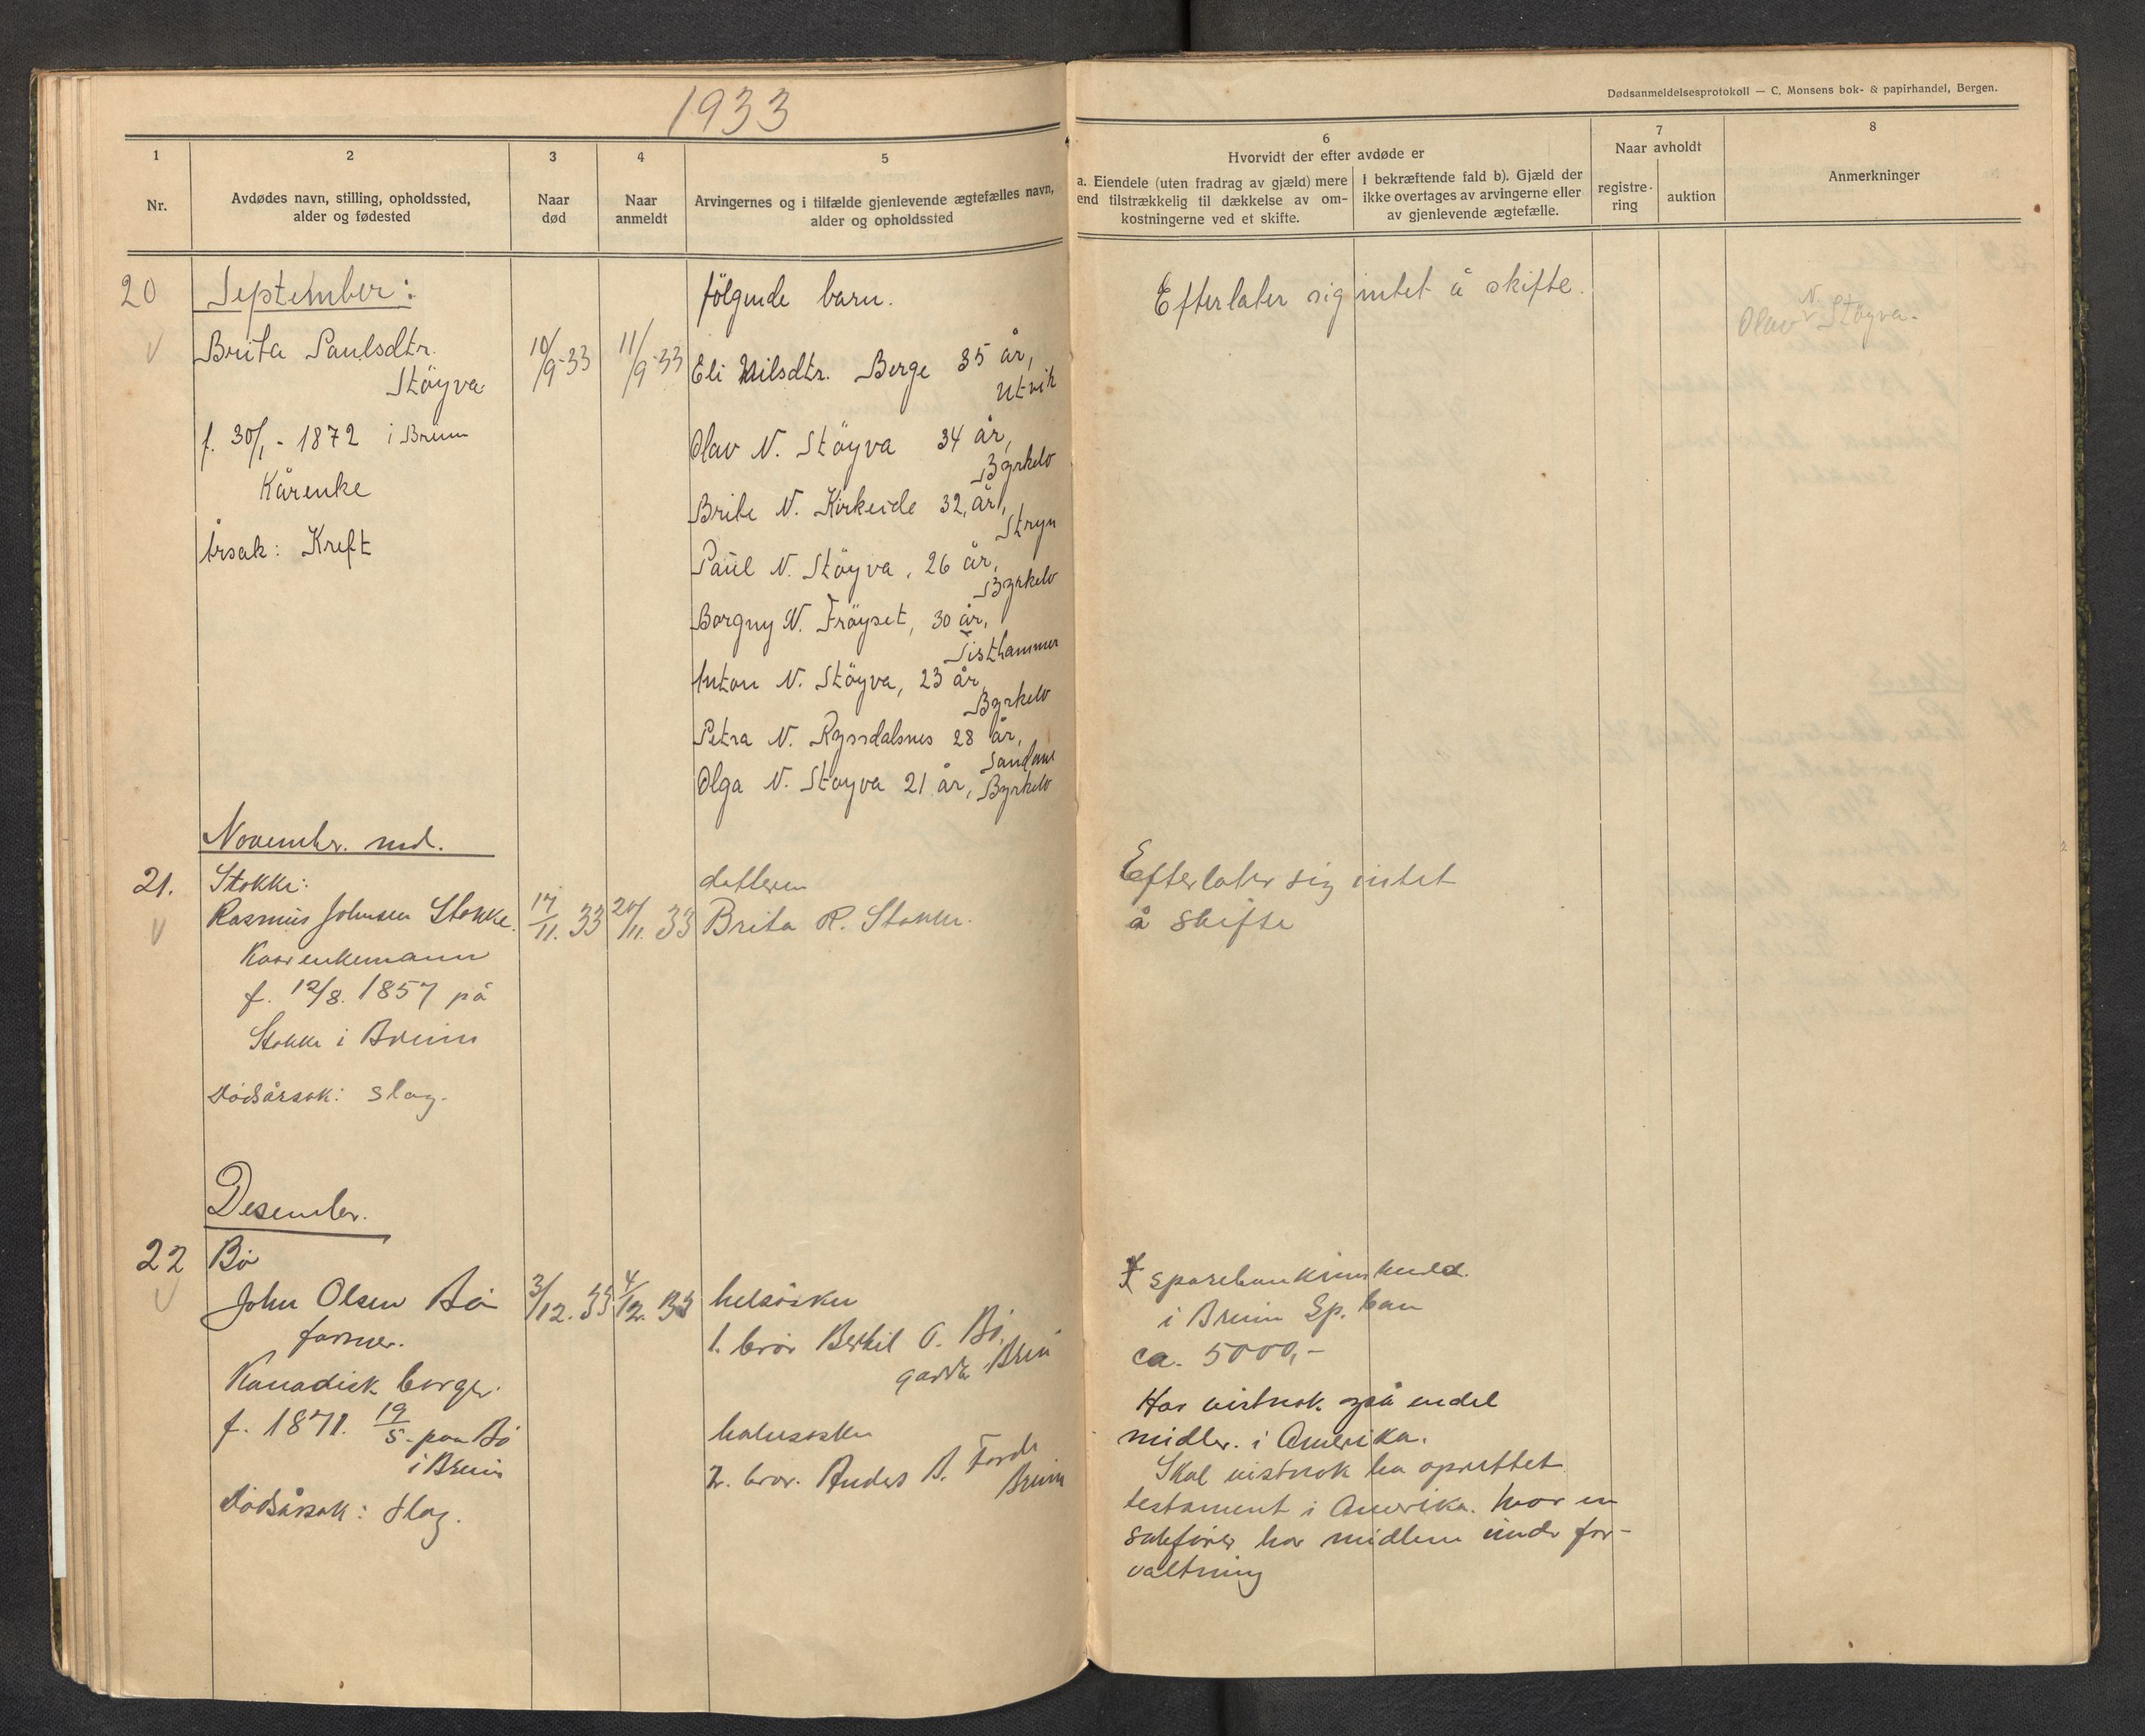 1933
Dødsanmeldelsesprotokoll — C. Monsens bok- & papirhandel, Bergen.
1
Nr.
2
Avdødes navn, stilling, opholdssted,
alder og fødested
3
Naar
død
4
Naar
anmeldt
5
Arvingernes og i tilfælde gjenlevende ægtefælles navn,
alder og opholdssted
6
Hvorvidt der efter avdøde er
a. Eiendele (uten fradrag av gjæld) mere
end tilstrækkelig til dækkelse av om-
kostningerne ved et skifte.
I bekræftende fald b). Gjæld der
ikke overtages av arvingerne eller
av gjenlevende ægtefælle.
7
Naar avholdt
registre-
ring
auktion
8
Anmerkninger
20
September:
Brita Paulsdtr.
Stöyva
f. 30/1 - 1872 i Breim
Kårenke
Årsak: Kreft
10/9-33
11/9-33
følgende barn.
Eli Nilsdtr. Berge 35 år,
Utvik
Olav N. Stöyva 34 år,
Byrkelo
Brite N. Kirkeide 32, år,
Stryn
Paul N. Stöyva, 26 år,
Byrkelo
Borgny N. Fröyset, 30 år,
Tisthammer
Anton N. Stöyva, 23 år
Byrkelo
Petra N. Ryssdalsnes 28 år,
Sandane
Olga N. Stöyva 21 år, Byrkelo
Efterlater sig intet å skifte.
Olav N. Stöyva.
Novembr. md.
21.
Stokke:
Rasmus Johnsen Stokke.
Kaarenkemann
f. 12/8. 1857 på
Stokke i Breim
Dödsårsak: slag.
17/11. 33
20/11. 33
datteren
Brita R. Stokke.
Efterlater sig intet
å skifte
Desember.
22
Bö
John Olsen Bö
farmer.
Kanadisk borger.
f. 1871. 19/5. paa Bö
i Breim
Dödsårsak: slag.
3/12. 33
4/12. 33
helsösken
1. bror Bertil O. Bö,
Breim
halvsösken
2. bror. Anders B. Förde
Breim
sparebankinnskudd.
i Breim Sp. ban
ca. 5000,-
Har vistnok også endel
midler. i Amerika.
Skal vistnok ha oprettet
testament i Amerika. hvor en
sakförer har midlene under for-
valtning